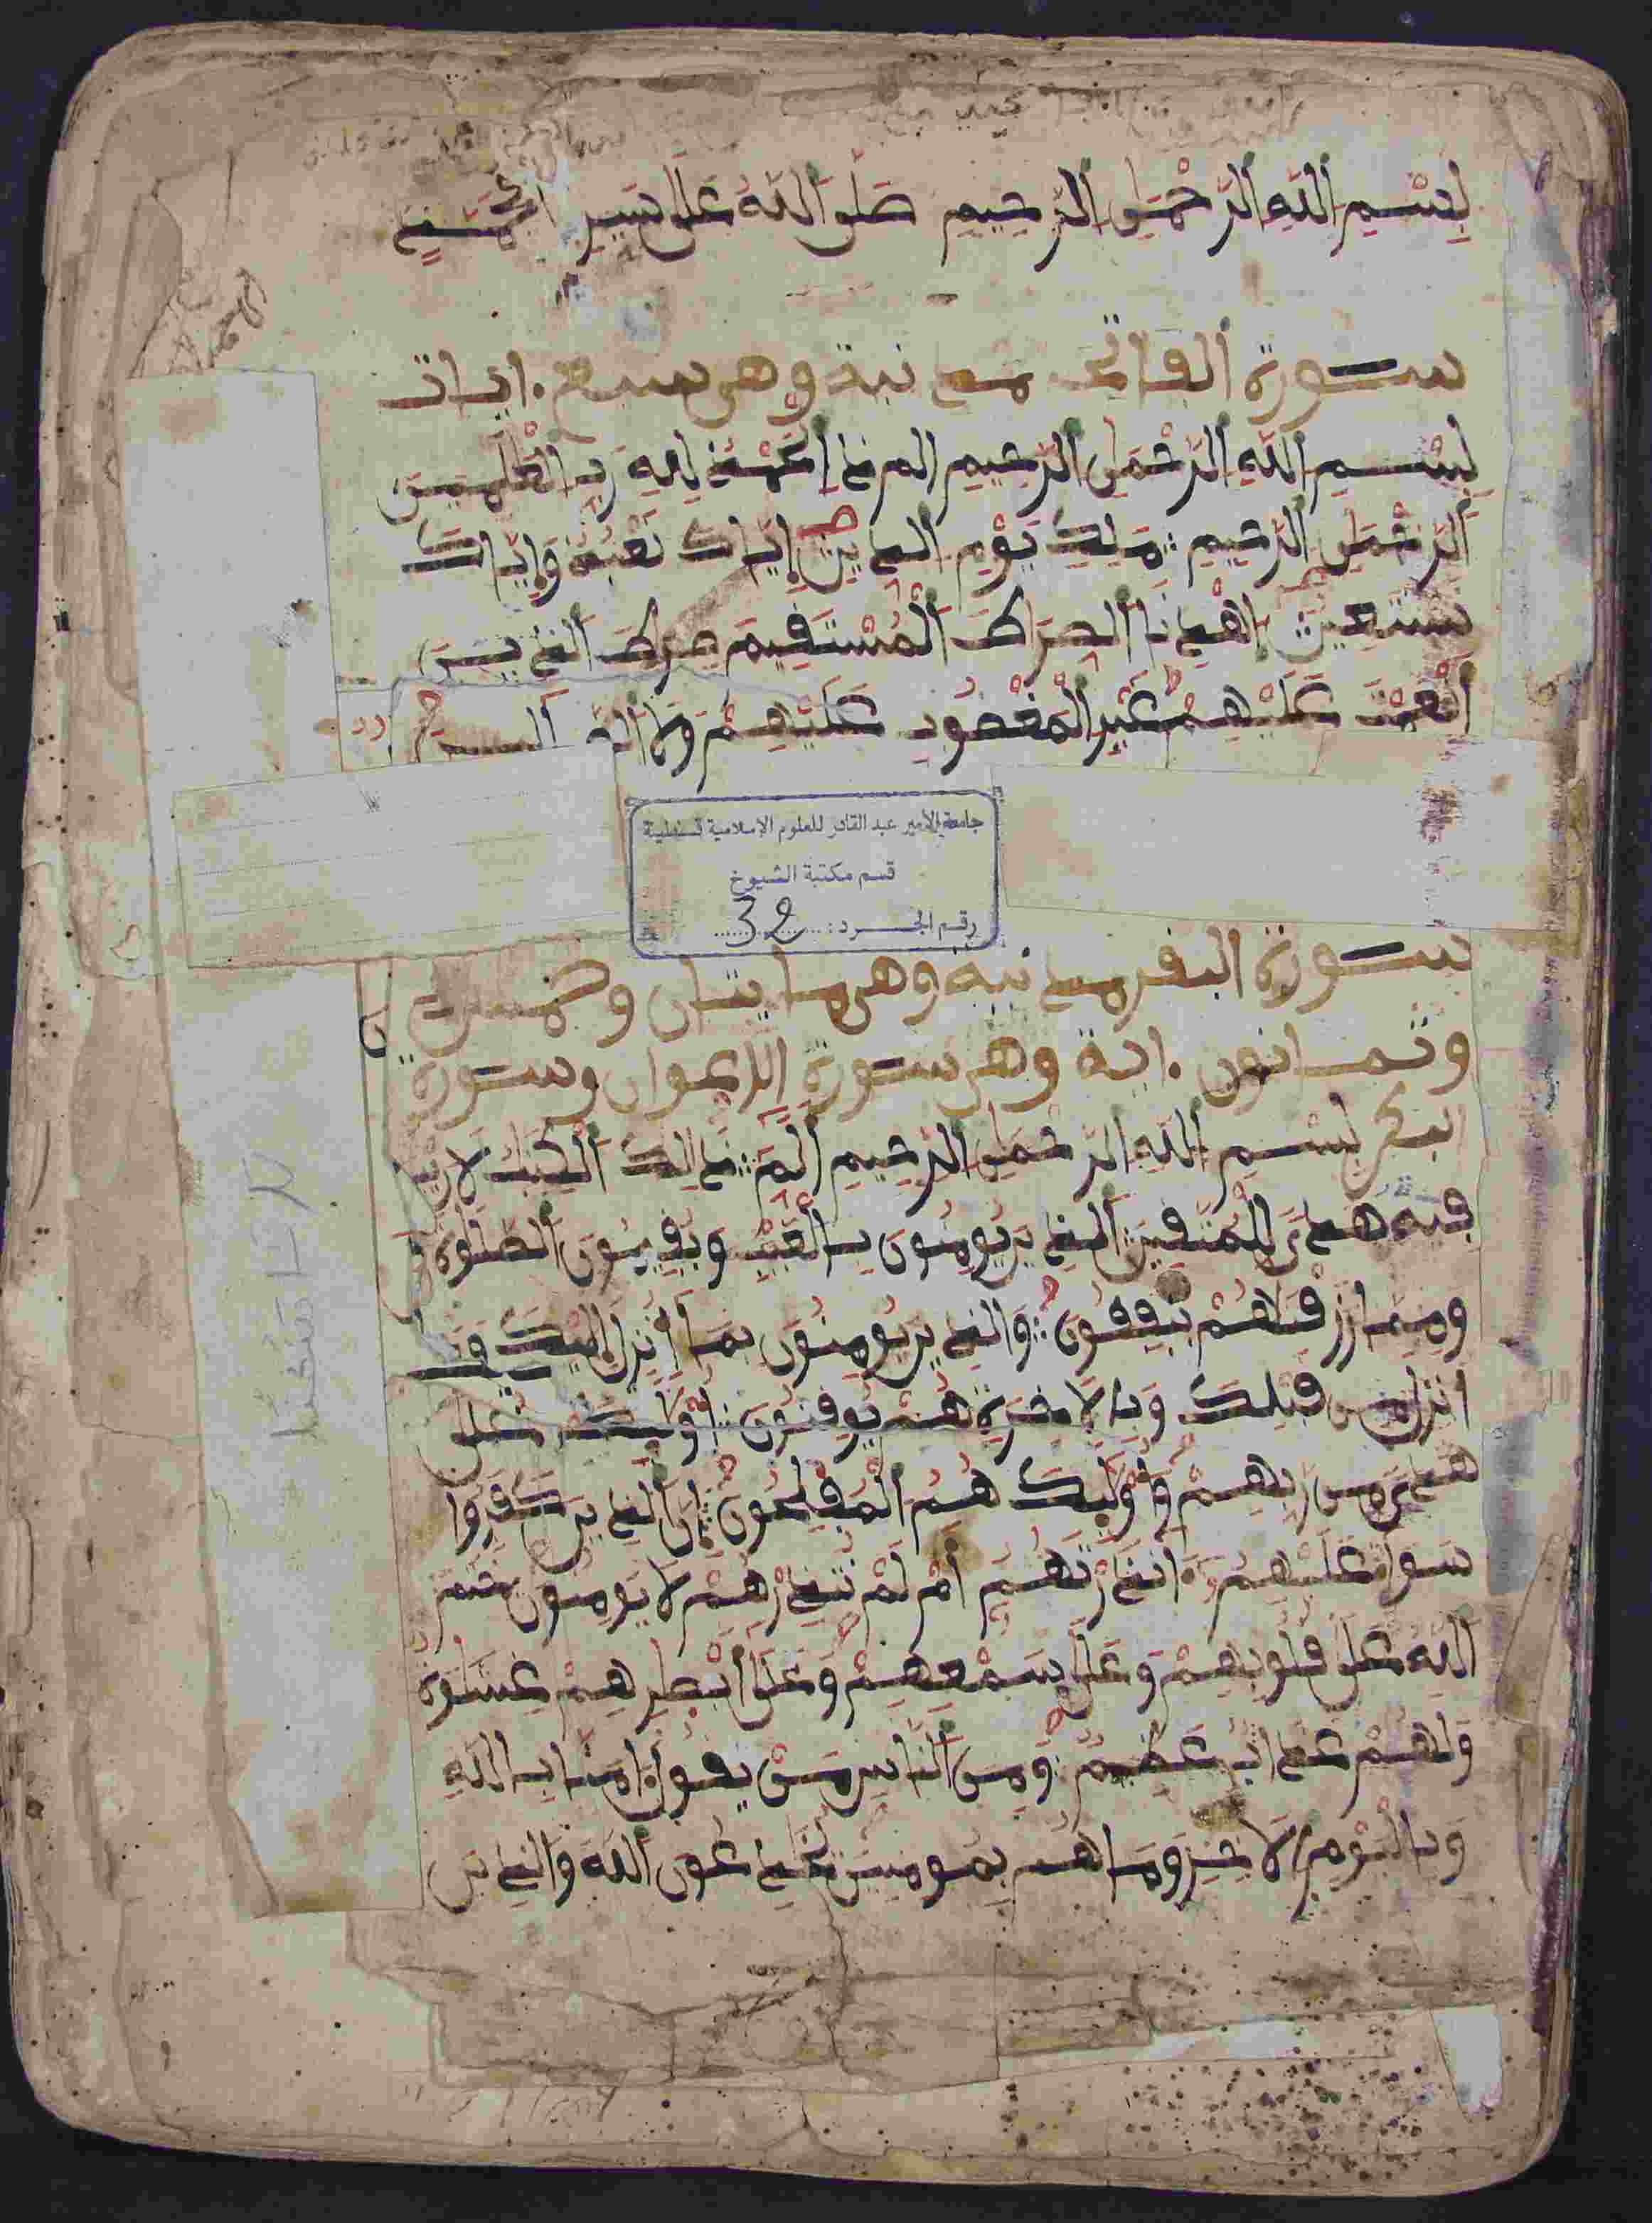 بِسْمِ اللهِ الرَّحْمَٰنِ الرَّحِيمِ صَلَّى اللهُ عَلَى سَيِّدِ
سورة الفاتحـ مدنية وهي سبع ءايات
بِسْمِ اللهِ الرَّحْمَٰنِ الرَّحِيمِ الْحَمْدُ لِلهِ رَبِّ الْعَٰلَمِينَ
الرَّحْمَٰنِ الرَّحِيمِ مَلِكِ يَوْمِ الدِّينِ إِيَّاكَ نَعْبُدُ وَإِيَّاكَ
نَسْتَعِينُ اهْدِنَا الصِّرَاطَ الْمُسْتَقِيمَ صِرَاطَ الذِينَ
أَنْعَمْتَ عَلَيْهِمْ غَيْرِ الْمَغْضُوبِ عَلَيْهِمْ وَلَا
جامعة الأمير عبد القادر للعلوم الإسلامية قسنطينة
قسم مكتبة الشيوخ
رقم الجـــرد: 32
سورة البقر مدنية وهي مايتان وخمس
وثمانون ءاية وهي سورة وسورة
بِسْمِ اللهِ الرَّحْمَٰنِ الرَّحِيمِ أَلَمِّ ذَٰلِكَ الْكِتَٰبُ لَا رَيْبَ
فِيهِ هُدًى لِّلْمُتَّقِينَ الذِينَ يُومِنُونَ بِالْغَيْبِ وَيُقِيمُونَ الصَّلَوٰةَ
وَمِمَّا رَزَقْنَٰهُمْ يُنفِقُونَ وَالذِينَ يُومِنُونَ بِمَا أُنزِلَ إِلَيْكَ وَمَا
أُنزِلَ مِن قَبْلِكَ وَبِالَاخِرَةِ هُمْ يُوقِنُونَ أُوْلَٰئِكَ عَلَىٰ
هُدًى مِّن رَّبِّهِمْ وَأُوْلَٰئِكَ هُمُ الْمُفْلِحُونَ إِنَّ الذِينَ كَفَرُوا
سَوَاءٌ عَلَيْهِمُ ءَانذَرْتَهُمُ أَمْ لَمْ تُنذِرْهُمْ لَا يُومِنُونَ خَتَمَ
اللهُ عَلَىٰ قُلُوبِهِمْ وَعَلَىٰ سَمْعِهِمْ وَعَلَىٰ أَبْصٰرِهِمْ غِشَٰوَةٌ
وَلَهُمْ عَذَابٌ عَظِيمٌ وَمِنَ النَّاسِ مَنْ يَّقُولُ ءَامَنَّا بِاللهِ
وَبِالْيَوْمِ الَاخِرِ وَمَا هُم بِمُومِنِينَ يُخَٰدِعُونَ اللهَ وَالذِينَ